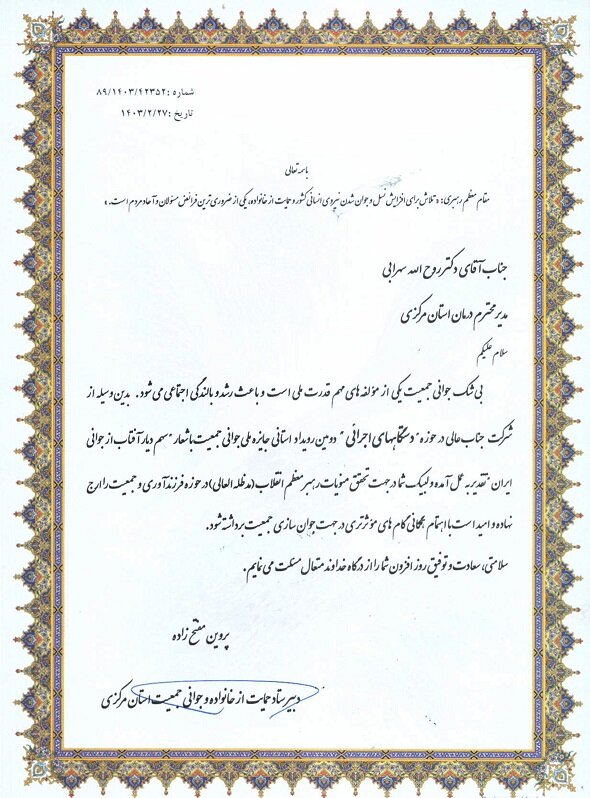 شماره :۸۹/۱۴۰۳/۴۲۳۵۲
تاریخ :۱۴۰۳/۲/۲۷
باسمه تعالی
مقام معظم رهبری: « تلاش برای افزایش نسل و جوان شدن نیروی انسانی کشور و حمایت از خانواده، یکی از ضروری ترین فرائض مسئولان و آحاد مردم است. »
جناب آقای دکتر روح الله سهرابی
مدیر محترم درمان استان مرکزی
سلام علیکم
بی شک جوانی جمعیت یکی از مؤلفه های مهم قدرت ملی است و باعث رشد و بالندگی اجتماعی می شود. بدین وسیله از
شرکت جناب عالی در حوزه "دستگاههای اجرائی" دومین رویداد استانی جایزه ملی جوانی جمعیت با شعار "سهم دیار آفتاب از جوانی
ایران" تقدیر به عمل آمده و لبیک شما در جهت تحقق منویات رهبر معظم انقلاب (مدظله العالی) در حوزه فرزندآوری و جمعیت را ارج
نهاده و امید است با اهتمام همگانی گام های مؤثرتری در جهت جوان سازی جمعیت برداشته شود.
سلامتی، سعادت و توفیق روز افزون شما را از درگاه خداوند متعال مسئلت می نمایم.
پروین مفتح زاده
دبیر ستاد حمایت از خانواده و جوانی جمعیت استان مرکزی